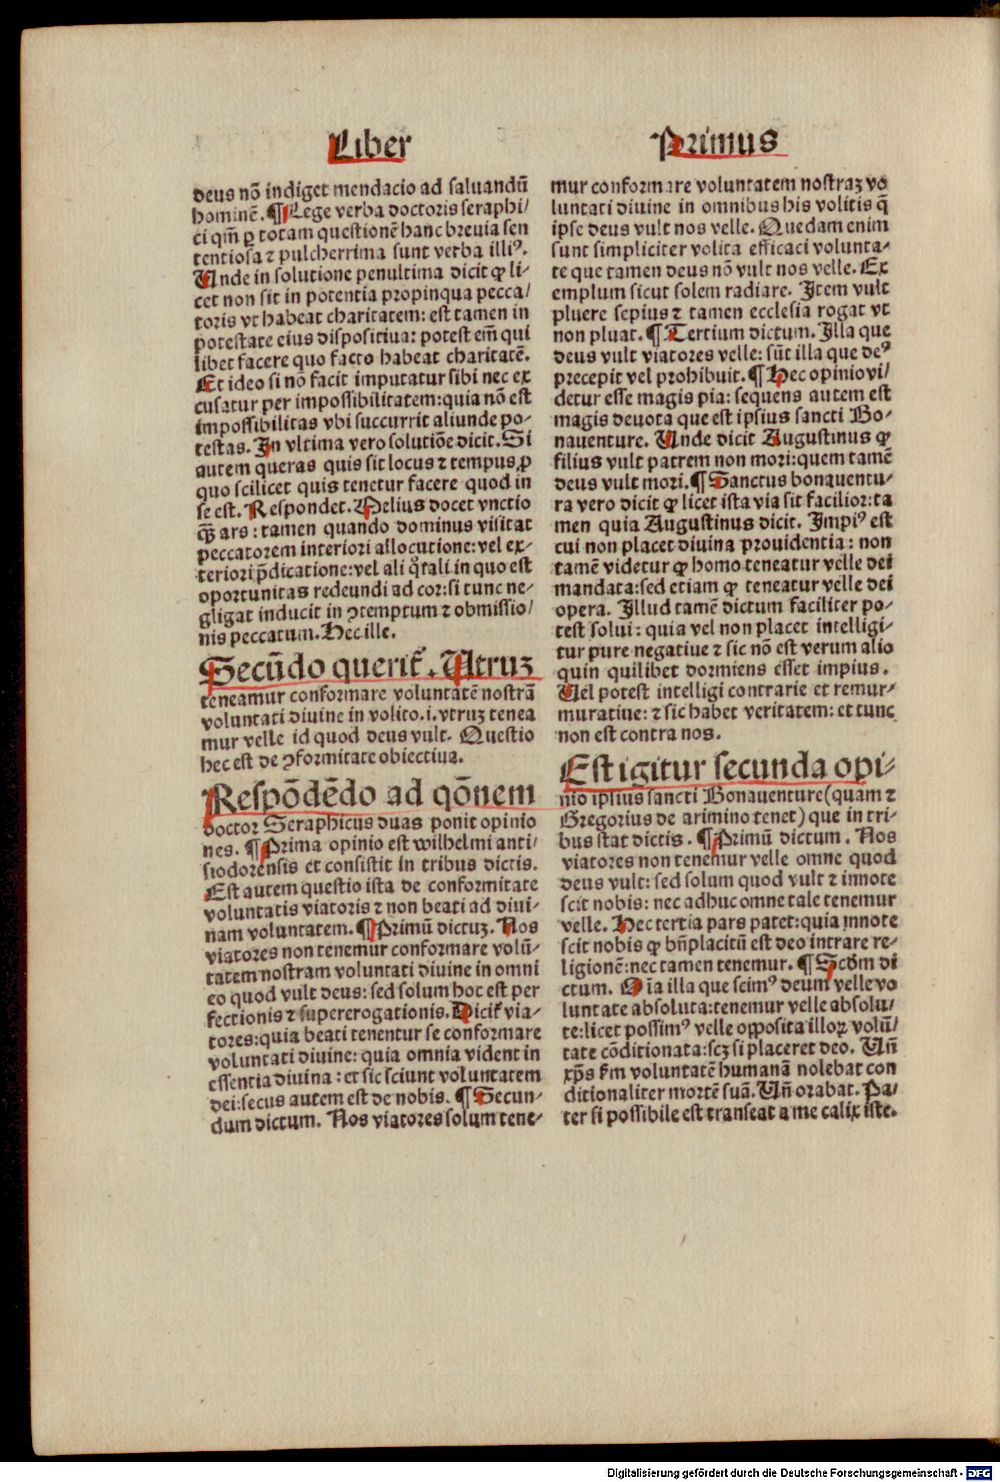 Liber
Primus
deus nō indiget mendacio ad saluandū
hominē. ¶ Lege verba doctoris seraphi/
ci qm̄ ꝑ totam questionē hanc breuia sen
tentiosa ⁊ pulcherrima sunt verba illiꝰ.
Unde in solutione penultima dicit ꝙ li-
cet non sit in potentia propinqua pecca/
toris vt habeat charitatem: est tamen in
potestate eius dispositiua: potest em̄ qui
libet facere quo facto habeat charitatē.
Et ideo si nō facit imputatur sibi nec ex
cusatur per impossibilitatem: quia nō est
impossibilitas vbi succurrit aliunde po-
testas. In vltima vero solutiōe dicit. Si
autem queras quis sit locus ⁊ tempus ꝓ
quo scilicet quis tenetur facere quod in
se est. Respondet. Melius docet vnctio
qȝ̄ ars: tamen quando dominus visitat
peccatorem interiori allocutione: vel ex-
teriori p̄dicatione: vel ali q̄rali in quo est
oportunitas redeundi ad cor: si tunc ne-
gligat inducit in ꝯtemptum ⁊ obmissio/
nis peccatum. Hec ille.
Secūdo querit᷑. Utruꝫ
teneamur conformare voluntatē nostrā
voluntati diuine in volito .i. vtruꝫ tenea
mur velle id quod deus vult. Questio
hec est de ꝯformitate obiectiua.
Respōdēdo ad qōnem
doctor Seraphicus duas ponit opinio
nes. ¶ Prima opinio est wilhelmi anti/
siodorensis et consistit in tribus dictis.
Est autem questio ista de conformitate
voluntatis viatoris ⁊ non beati ad diui-
nam voluntatem. ¶ Primū dictuꝫ. Nos
viatores non tenemur conformare volū-
tatem nostram voluntati diuine in omni
eo quod vult deus: sed solum hoc est per
fectionis ⁊ supererogationis. Dicit᷑ via-
tores: quia beati tenentur se conformare
voluntati diuine: quia omnia vident in
essentia diuina: et sic sciunt voluntatem
dei: secus autem est de nobis. ¶ Secun-
dum dictum. Nos viatores solum tene-
mur conformare voluntatem nostraꝫ vo
luntati diuine in omnibus his volitis q̄
ipse deus vult nos velle. Quedam enim
sunt simpliciter volita efficaci volunta-
te que tamen deus nō vult nos velle. Ex
emplum sicut solem radiare. Item vult
pluere sepius ⁊ tamen ecclesia rogat vt
non pluat. ¶ Tertium dictum. Illa que
deus vult viatores velle: sūt illa que deꝰ
precepit vel prohibuit. ¶ Hec opinio vi/
detur esse magis pia: sequens autem est
magis deuota que est ipsius sancti Bo-
nauenture. Unde dicit Augustinus ꝙ
filius vult patrem non mori: quem tamē
deus vult mori. ¶ Sanctus bonauentu-
ra vero dicit ꝙ licet ista via sit facilior: ta
men quia Augustinus dicit. Impiꝰ est
cui non placet diuina prouidentia: non
tamē videtur ꝙ homo teneatur velle dei
mandata: sed etiam ꝙ teneatur velle dei
opera. Illud tamē dictum faciliter po-
test solui: quia vel non placet intelligi-
tur pure negatiue ⁊ sic nō est verum alio
quin quilibet dormiens esset impius.
Uel potest intelligi contrarie et remur-
muratiue: ⁊ sic habet veritatem: et tunc
non est contra nos.
Est igitur secunda opi-
nio ipsius sancti Bonauenture (quam ⁊
Gregorius de arimino tenet) que in tri-
bus stat dictis. ¶ Primū dictum. Nos
viatores non tenemur velle omne quod
deus vult: sed solum quod vult ⁊ innote
scit nobis: nec adhuc omne tale tenemur
velle. Hec tertia pars patet: quia innote
scit nobis ꝙ bn̄placitū est deo intrare re-
ligionē: nec tamen tenemur. ¶ Scdm di
ctum. Oīa illa que scimꝰ deum velle vo
luntate absoluta: tenemur velle absolu-
te: licet possimꝰ velle opposita illoꝝ volū/
tate cōditionata: scꝫ si placeret deo. Un̄
xp̄s fm voluntatē humanā nolebat con
ditionaliter mortē suā. Un̄ orabat. Pa/
ter si possibile est transeat a me calix iste.
Digitalisierung gefördert durch die Deutsche Forschungsgemeinschaft - DFG